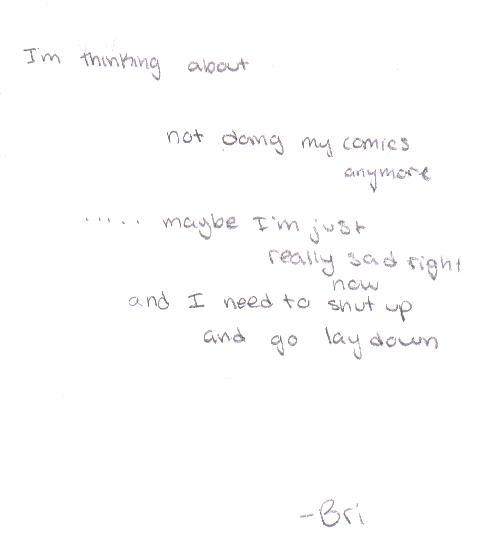 I'm thinking about
not doing my comics
anymore
..... maybe I'm just
really sad right
now
and I need to shut up
and go lay down
-Bri